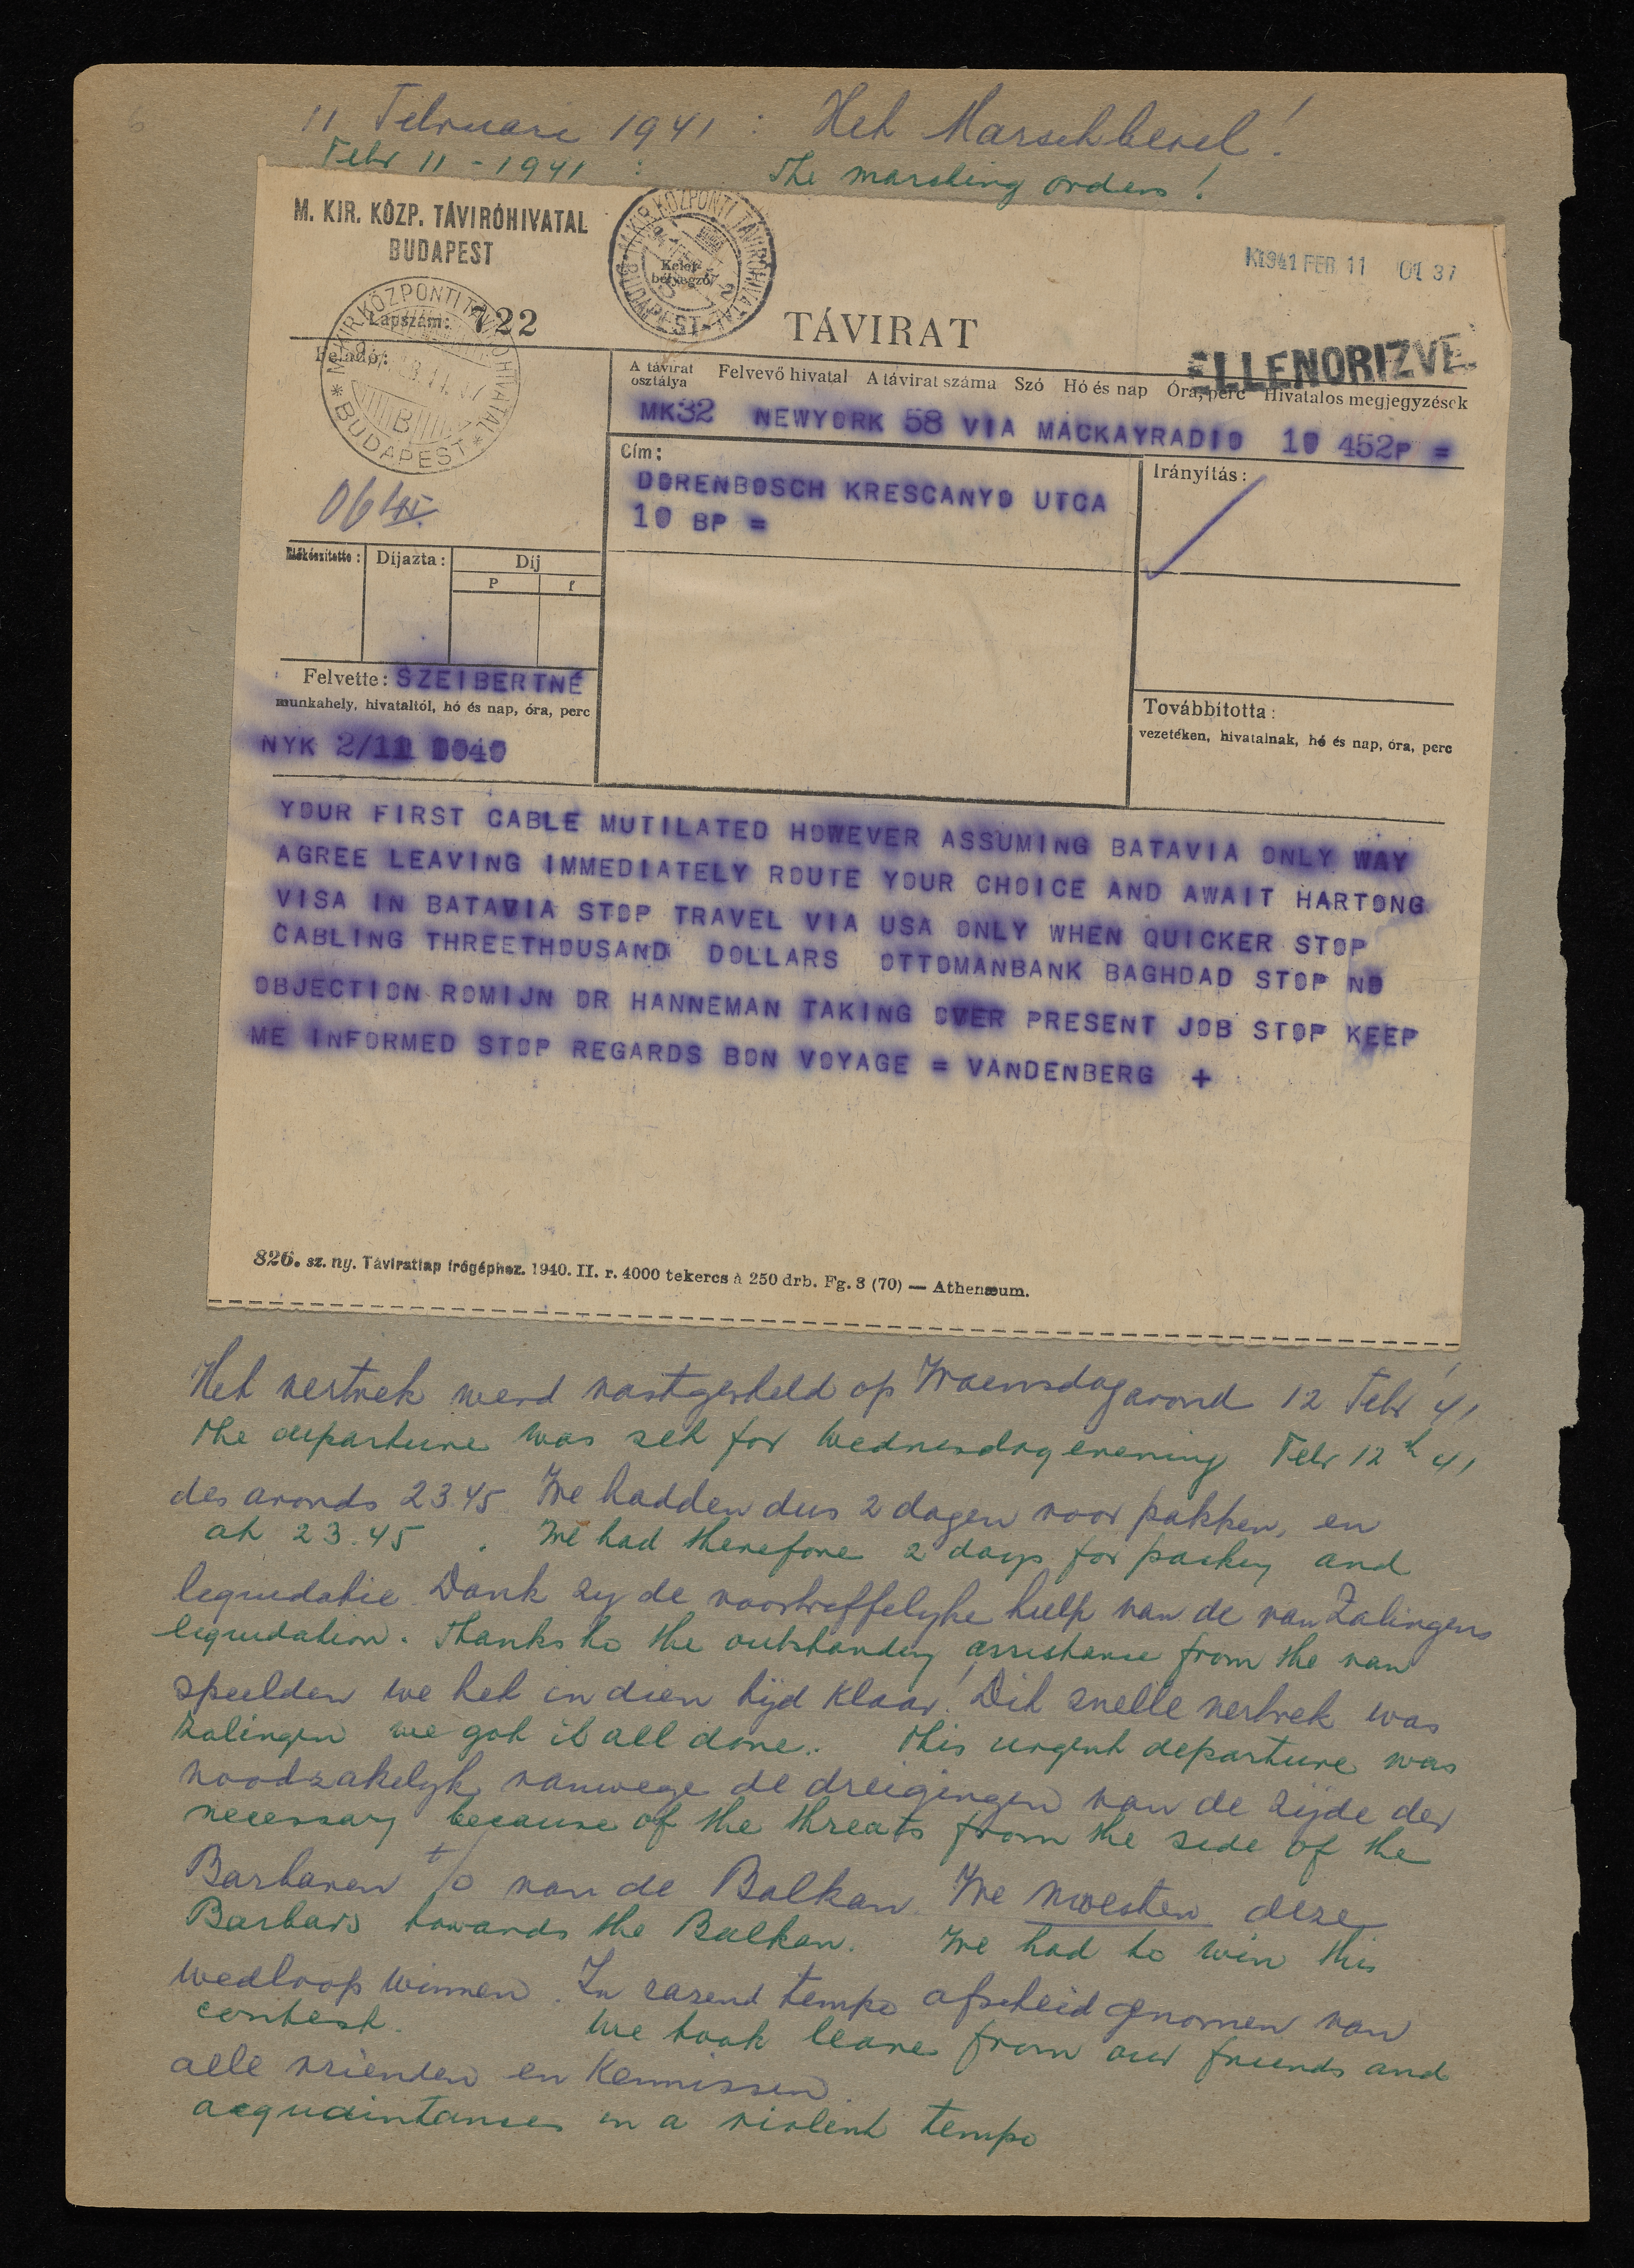 11 Februari 1941 : Het Marschbevel!
Febr 11 - 1941 : The marching orders!
M. KIR. KÖZP. TÁVIRÓHIVATAL
BUDAPEST
M. KIR. KÖZPONTI TÁVIRÓHIVATAL
Kelet-
bélyegző
BUDAPEST
K1941 FEB 11 01 37
M. KIR. KÖZPONTI TÁVIRÓHIVATAL
* BUDAPEST *
B
Lapszám: 722
TÁVIRAT
ELLENORIZVE
Feladó:
A távirat osztálya Felvevő hivatal A távirat száma Szó Hó és nap Óra, perc Hivatalos megjegyzések
MK32 NEWYORK 58 VIA MACKAYRADIO 10 452P =
Cím:
Irányítás:
DORENBOSCH KRESCANYO UTCA
10 BP =
Előkészítette: Díjazta: Díj
P f
Felvette: SZEIBERTNÉ
munkahely, hivataltól, hó és nap, óra, perc
NYK 2/11 0040
Továbbította:
vezetéken, hivatalnak, hó és nap, óra, perc
YOUR FIRST CABLE MUTILATED HOWEVER ASSUMING BATAVIA ONLY WAY
AGREE LEAVING IMMEDIATELY ROUTE YOUR CHOICE AND AWAIT HARTONG
VISA IN BATAVIA STOP TRAVEL VIA USA ONLY WHEN QUICKER STOP
CABLING THREETHOUSAND DOLLARS OTTOMANBANK BAGHDAD STOP NO
OBJECTION ROMIJN OR HANNEMAN TAKING OVER PRESENT JOB STOP KEEP
ME INFORMED STOP REGARDS BON VOYAGE = VANDENBERG +
826. sz. ny. Táviratlap írógéphez. 1940. II. r. 4000 tekercs à 250 drb. Fg. 3 (70) — Athenæum.
Het vertrek werd vastgesteld op Woensdagavond 12 Febr '41
the departure was set for Wednesdag evening Febr 12th 41
des avonds 23.45 We hadden dus 2 dagen voor pakken, en
at 23.45 . We had therefore 2 days for packing and
liquidatie. Dank zij de voortreffelijke hulp van de van Zalingens
liquidation. Thanks to the outstanding assistance from the van
speelden we het in dien tijd klaar! Dit snelle vertrek was
Zalingen we got it all done. this urgent departure was
noodzakelijk vanwege de dreigingen van de zijde der
necessary because of the threats from the side of the
Barbaren t/o van de Balkan. We moesten deze
Barbars towards the Balkan. We had to win this
wedloop winnen. In razend tempo afscheid genomen van
contest. We took leave from our friends and
alle vrienden en kennissen.
acquaintances in a violent tempo